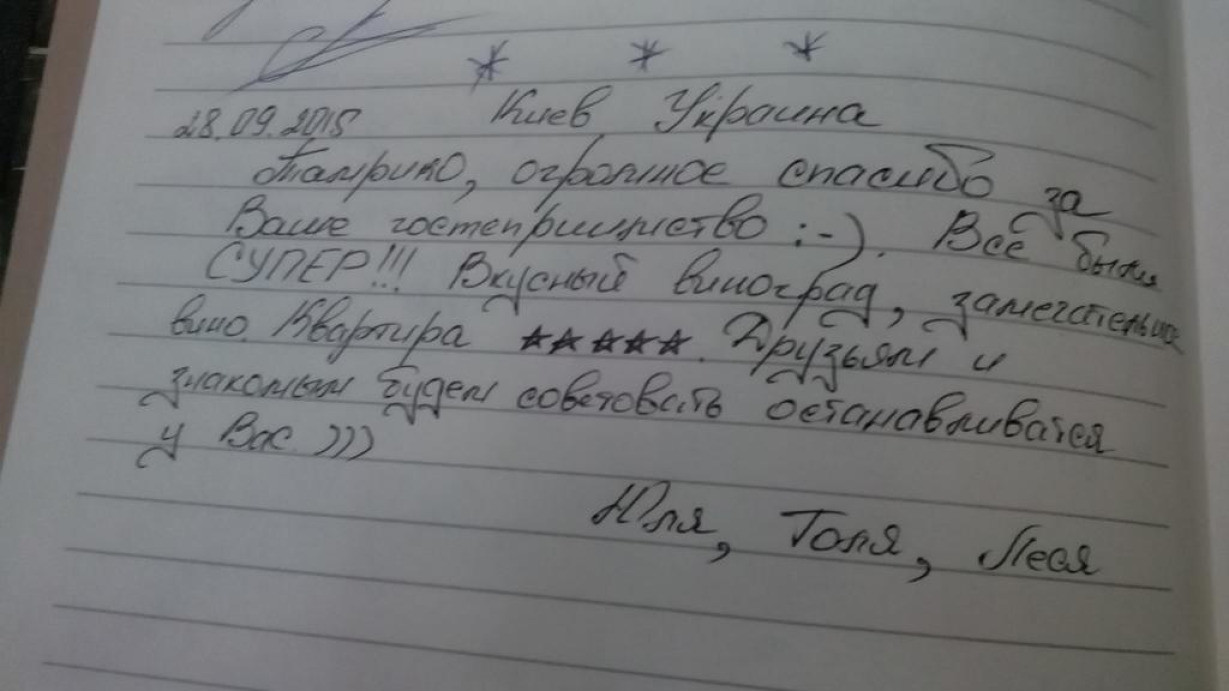 * * *
28.09.2015 Киев Украина
Тамрико, огромное спасибо за
Ваше гостеприимство :-). Всё было
СУПЕР!!! Вкусный виноград, замечательное
вино. Квартира ★★★★★. Друзьям и
знакомым будем советовать останавливатся
у Вас )))
Юля, Толя, Леся